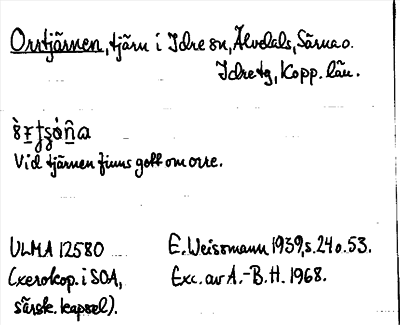 Orrtjärnen, tjärn i Idre sn, Älvdals, Särna o.
Idre tg, Kopp. län.
Vid tjärnen finns gott om orre.
ULMA 12580
(xerokop. i SOA,
särsk. kapsel).
E. Weissmann 1939, s. 24 o. 53.
Exc. av A.-B. H. 1968.